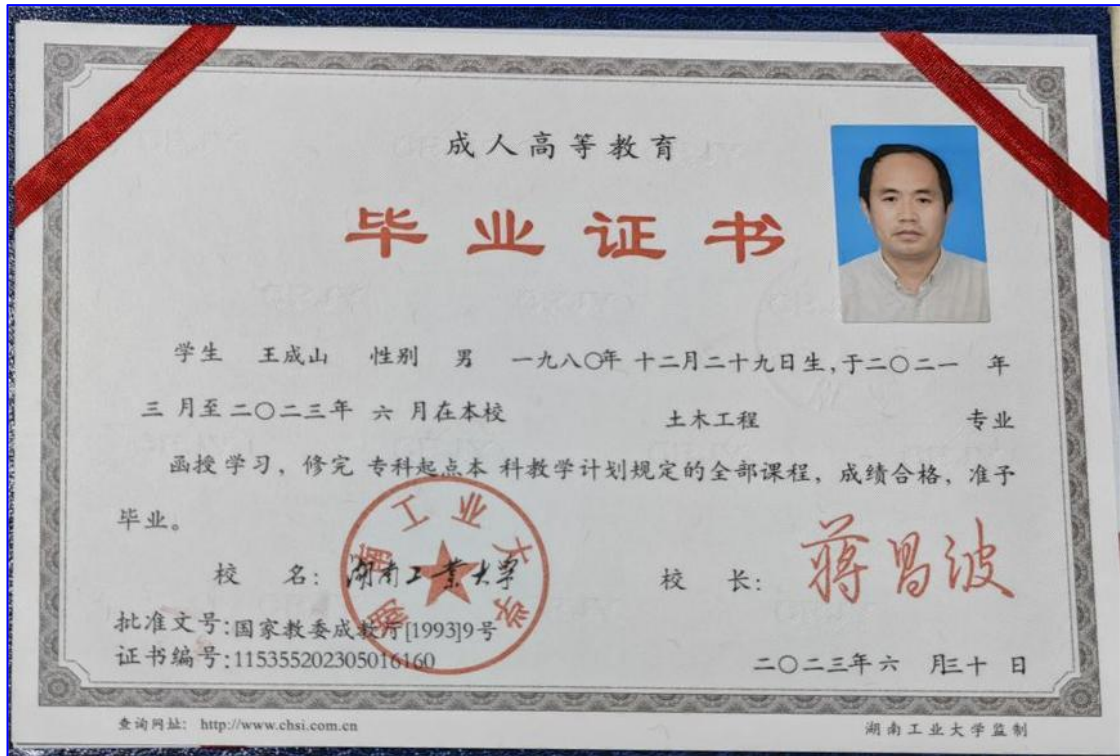 成人高等教育
毕业证书
学生 王成山 性别 男 一九八〇年 十二月二十九日生，于二〇二一 年
三 月至二〇二三年 六 月在本校 土木工程 专业
函授学习，修完 专科起点本 科教学计划规定的全部课程，成绩合格，准予
毕业。
湖南工业大学
校 名：湖南工業大学 校 长：蒋昌波
批准文号：国家教委成教厅[1993]9号
证书编号：115355202305016160
二〇二三年 六 月三十 日
查询网址：http://www.chsi.com.cn 湖南工业大学监制